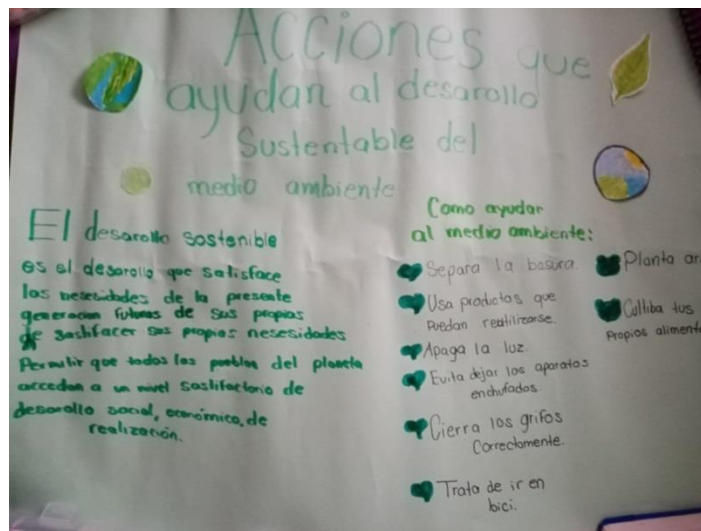 Acciones que
ayudan al desarollo
Sustentable del
medio ambiente
El desarollo sostenible
es el desarollo que satisface
las nesesidades de la presente
generacion futuras de sus propias
de sastifacer sus propias nesesidades
Permitir que todos los pueblos del planeta
accedan a un nivel sastifactorio de
desarollo social, económico, de
realización.
Como ayudar
al medio ambiente:
Separa la basura.
Usa productos que
Puedan reutilizarse.
Apaga la luz.
Evita dejar los aparatos
enchufados.
Cierra los grifos
Correctamente.
Trata de ir en
bici.
Planta ar
Cultiba tus
Propios aliment